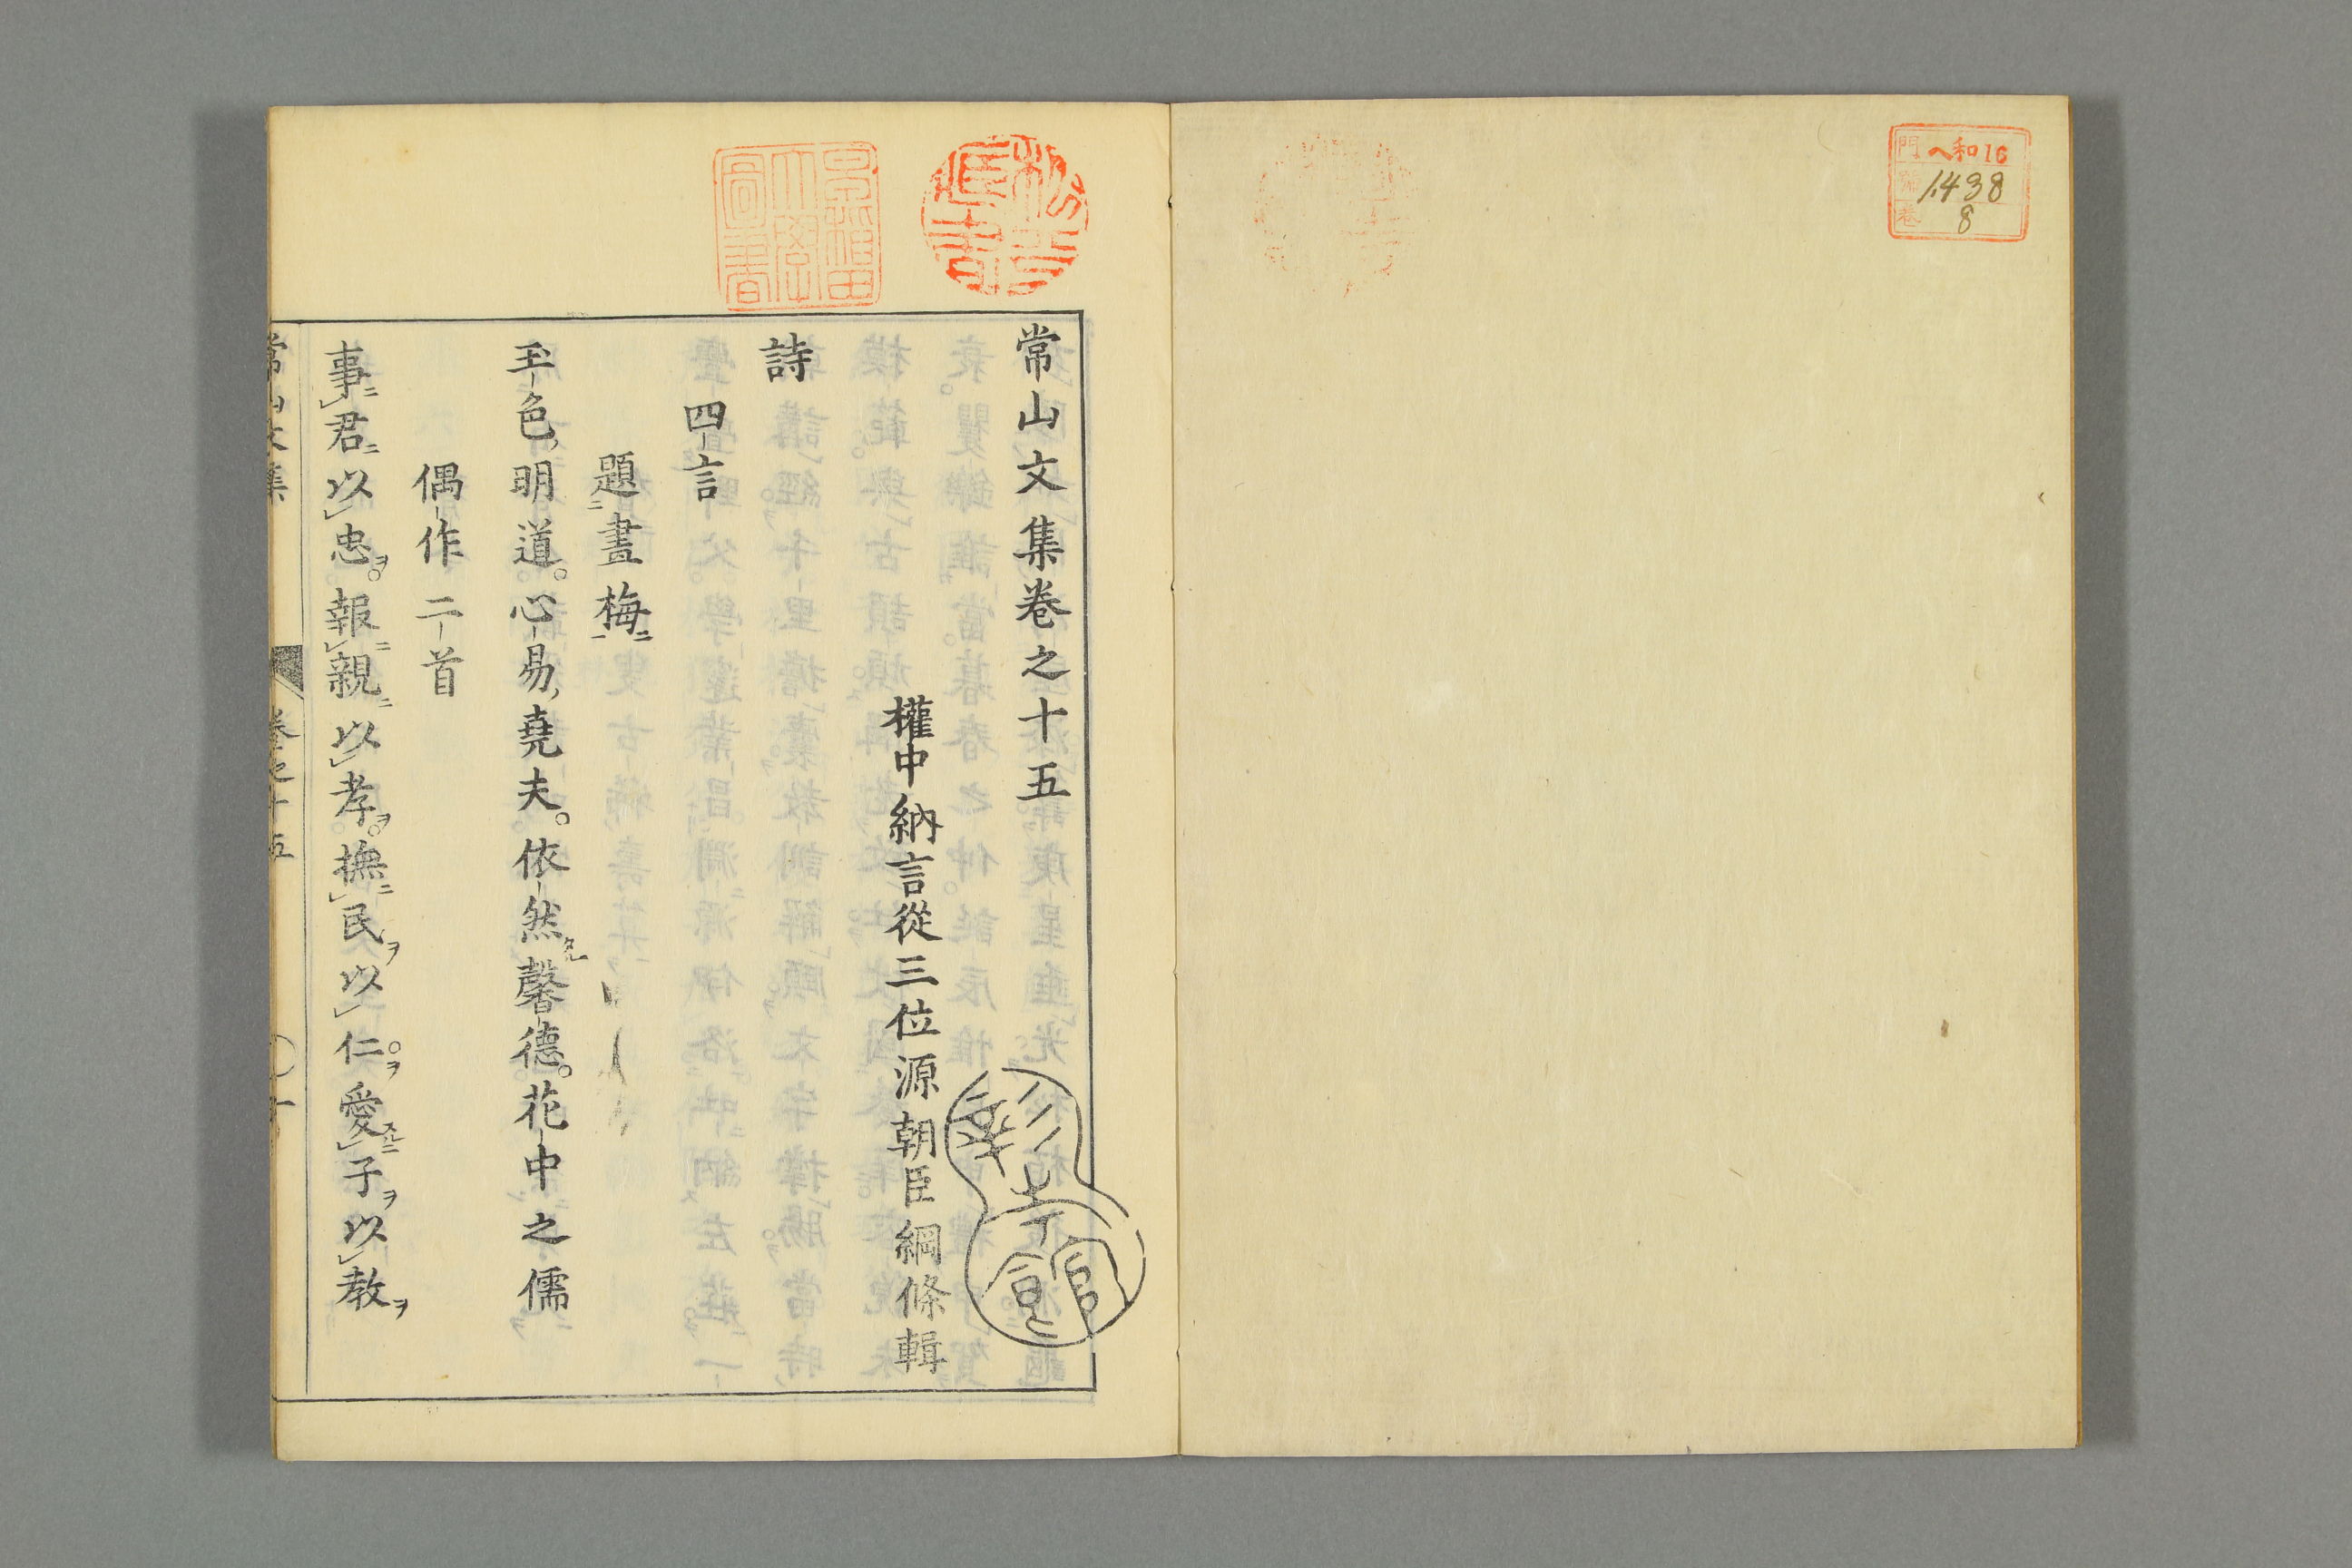 門 ヘ和16
號 1438
卷 8
早稲田大學圖書
彰考館
常山文集卷之十五
權中納言從三位源朝臣綱條輯
詩
四言
題畫梅
玉色明道。心易堯夫。依然馨德。花中之儒
偶作二首
事君以忠。報親以孝。撫民以仁。愛子以教
常山文集 卷之十五